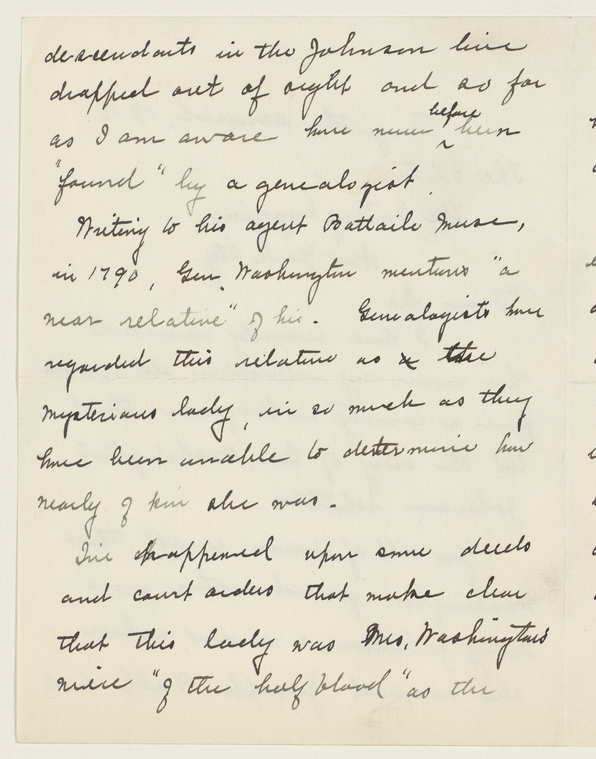 descendants in the Johnson line
dropped out of sight and so far
as I am aware have never before been
"found" by a genealogist.
Writing to his agent Battaile Muse,
in 1790, Gen. Washington mentions "a
near relative" of his. Genealogists have
regarded this relative as the
mysterious lady, in so much as they
have been unable to determine how
nearly of kin she was.
I've happened upon some deeds
and court orders that make clear
that this lady was Mrs. Washington's
niece "of the half blood" as the